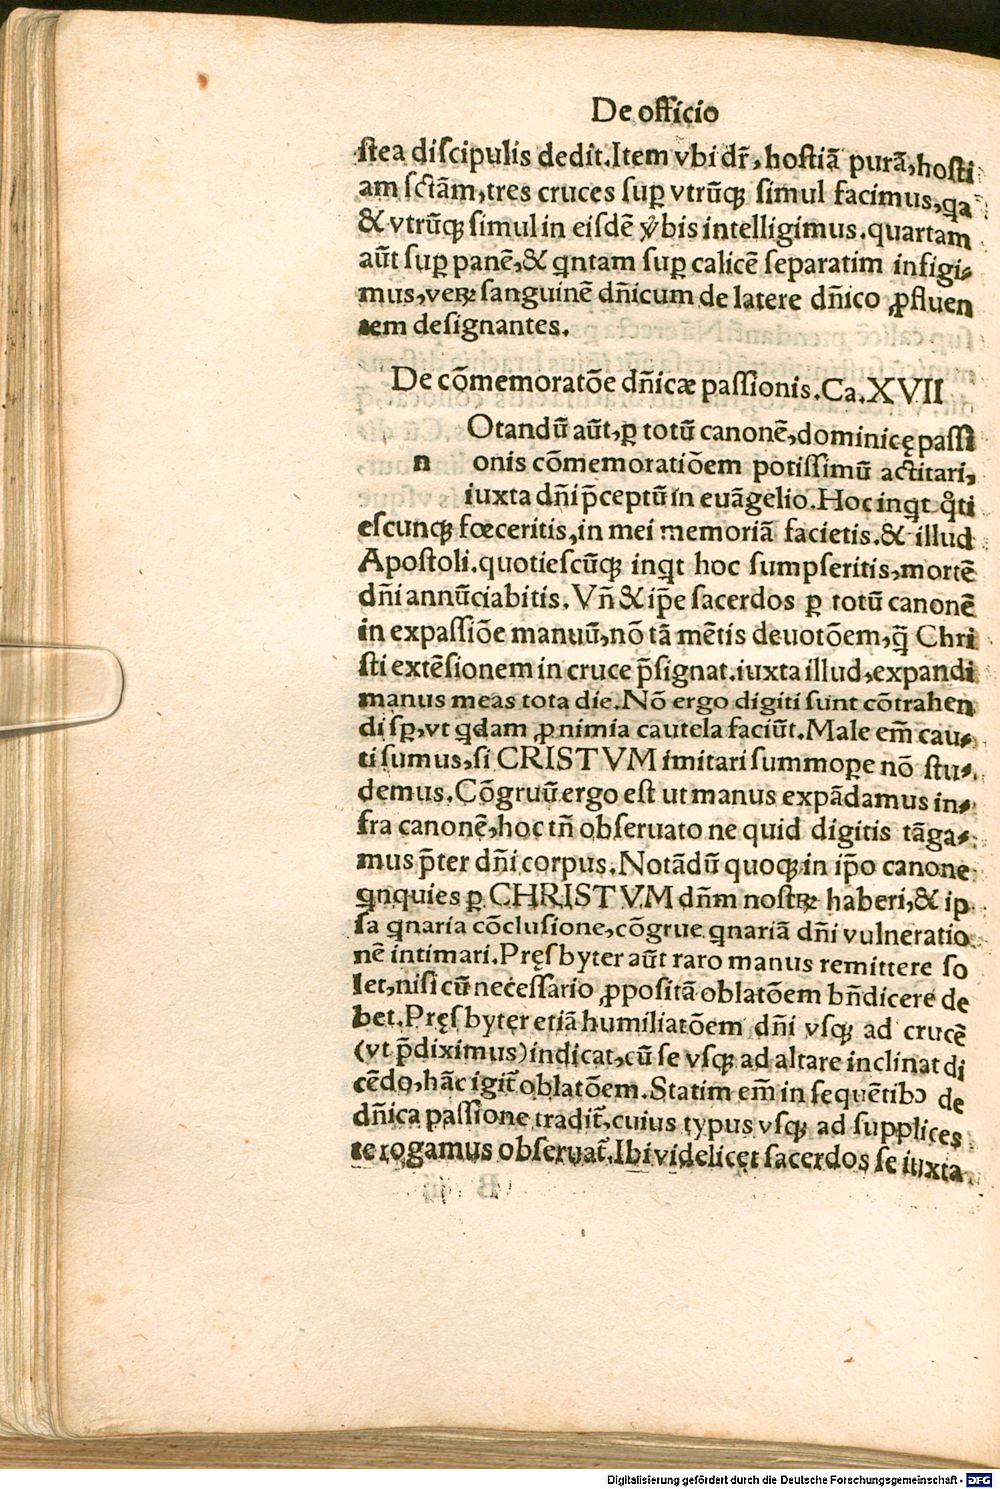 De officio
ſtea diſcipulis dedit. Item vbi dr̃, hoſtiã purã, hoſti
am ſctãm, tres cruces ſuꝑ vtrũqꝫ ſimul facimus, qa
& vtrũqꝫ ſimul in eiſdẽ v̾bis intelligimus. quartam
aũt ſuꝑ panẽ, & qntam ſuꝑ calicẽ ſeparatim infigi⸗
mus, veꝝ ſanguinẽ dñicum de latere dñico ꝓfluen
tem deſignantes.
De cõmemoratõe dñicæ paſſionis. Ca. XVII
Otandũ aũt, ꝑ totũ canonẽ, dominicę paſſi
n onis cõmemoratiõem potiſſimũ actitari,
iuxta dñi p̃ceptũ in euãgelio. Hoc inqt qͦti
eſcunqꝫ fœceritis, in mei memoriã facietis. & illud
Apoſtoli. quotieſcũqꝫ inqt hoc ſumpſeritis, mortẽ
dñi annũciabitis. Vñ & ip̃e ſacerdos ꝑ totũ canonẽ
in expaſſiõe manuũ, nõ tã mẽtis deuotõem, q̃ Chri
ſti extẽſionem in cruce p̃ſignat. iuxta illud, expandi
manus meas tota die. Nõ ergo digiti ſunt cõtrahen
di ſꝑ, vt qdam ꝓ nimia cautela faciũt. Male em̃ cau⸗
ti ſumus, ſi CRISTVM imitari ſummoꝑe nõ ſtu⸗
demus. Cõgruũ ergo eſt ut manus expãdamus in⸗
fra canonẽ, hoc tñ obſeruato ne quid digitis tãga⸗
mus p̃ter dñi corpus. Notãdũ quoqꝫ in ip̃o canone
qnquies ꝑ CHRISTVM dñm noſtꝝ haberi, & ip
ſa qnaria cõcluſione, cõgrue qnariã dñi vulneratio
nẽ intimari. Pręſbyter aũt raro manus remittere ſo
let, niſi cũ neceſſario ꝓpoſitã oblatõem bñdicere de
bet. Pręſbyter etiã humiliatõem dñi vſqꝫ ad crucẽ
(vt p̃diximus) indicat, cũ ſe vſqꝫ ad altare inclinat di
cẽdo, hãc igit̃ oblatõem. Statim em̃ in ſequẽtibꝰ de
dñica paſſione tradit̃, cuius typus vſqꝫ ad ſupplices
te rogamus obſeruat̃. Ibi videlicet ſacerdos ſe iuxta
Digitalisierung gefördert durch die Deutsche Forschungsgemeinschaft - DFG